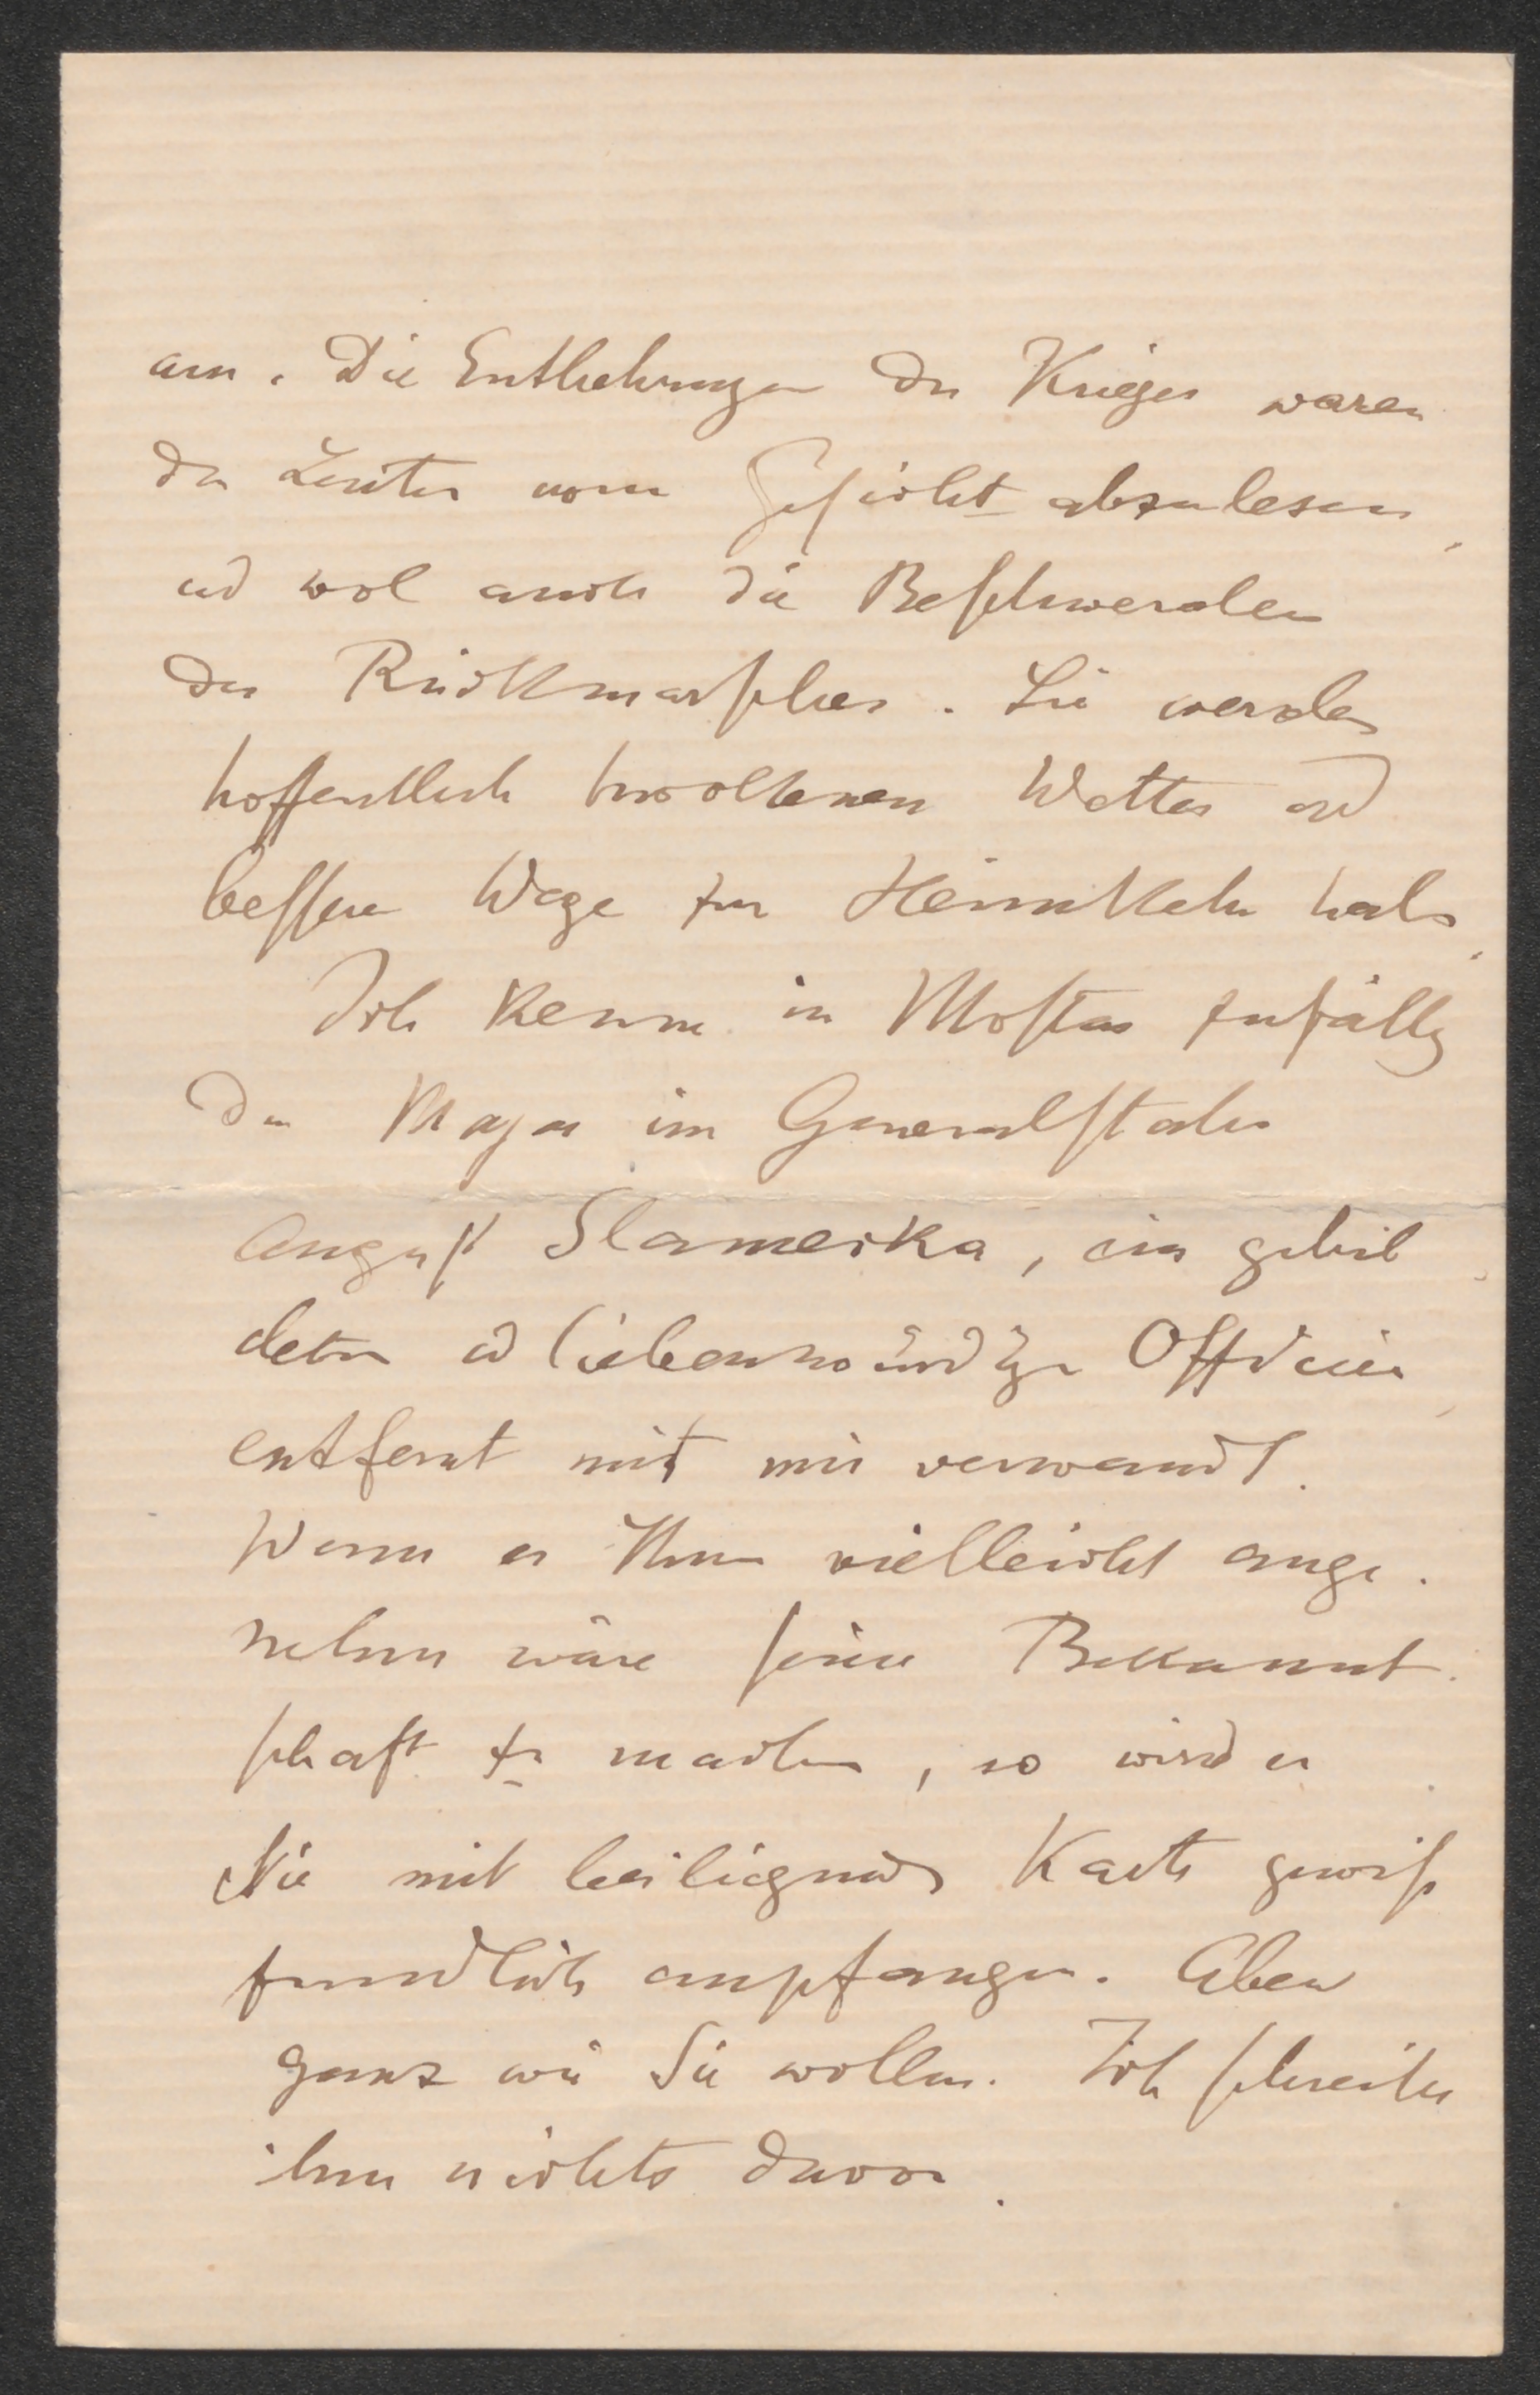 an. Die Entbehrungen des Krieges waren
den Leuten vom Gesicht abzulesen,
und wol auch die Beschwerden
des Rückmarsches. Sie werden
hoffentlich trockenen Wetter und
bessere Wege zur Heimkehr haben.
Ich kenne in Mostar zufällig
den Major im Generalstabe
August Slameczka, ein gebil
deter und liebenswürdiger Officier,
entfernt mit mir verwandt.
Wenn es Ihnen vielleicht ange-
nehm wäre seine Bekannt-
schaft zu machen, so wird er
Sie mit beiliegender Karte gewiß
freundlich empfangen. Aber
ganz wie Sie wollen. Ich schreibe
ihm nichts davon.